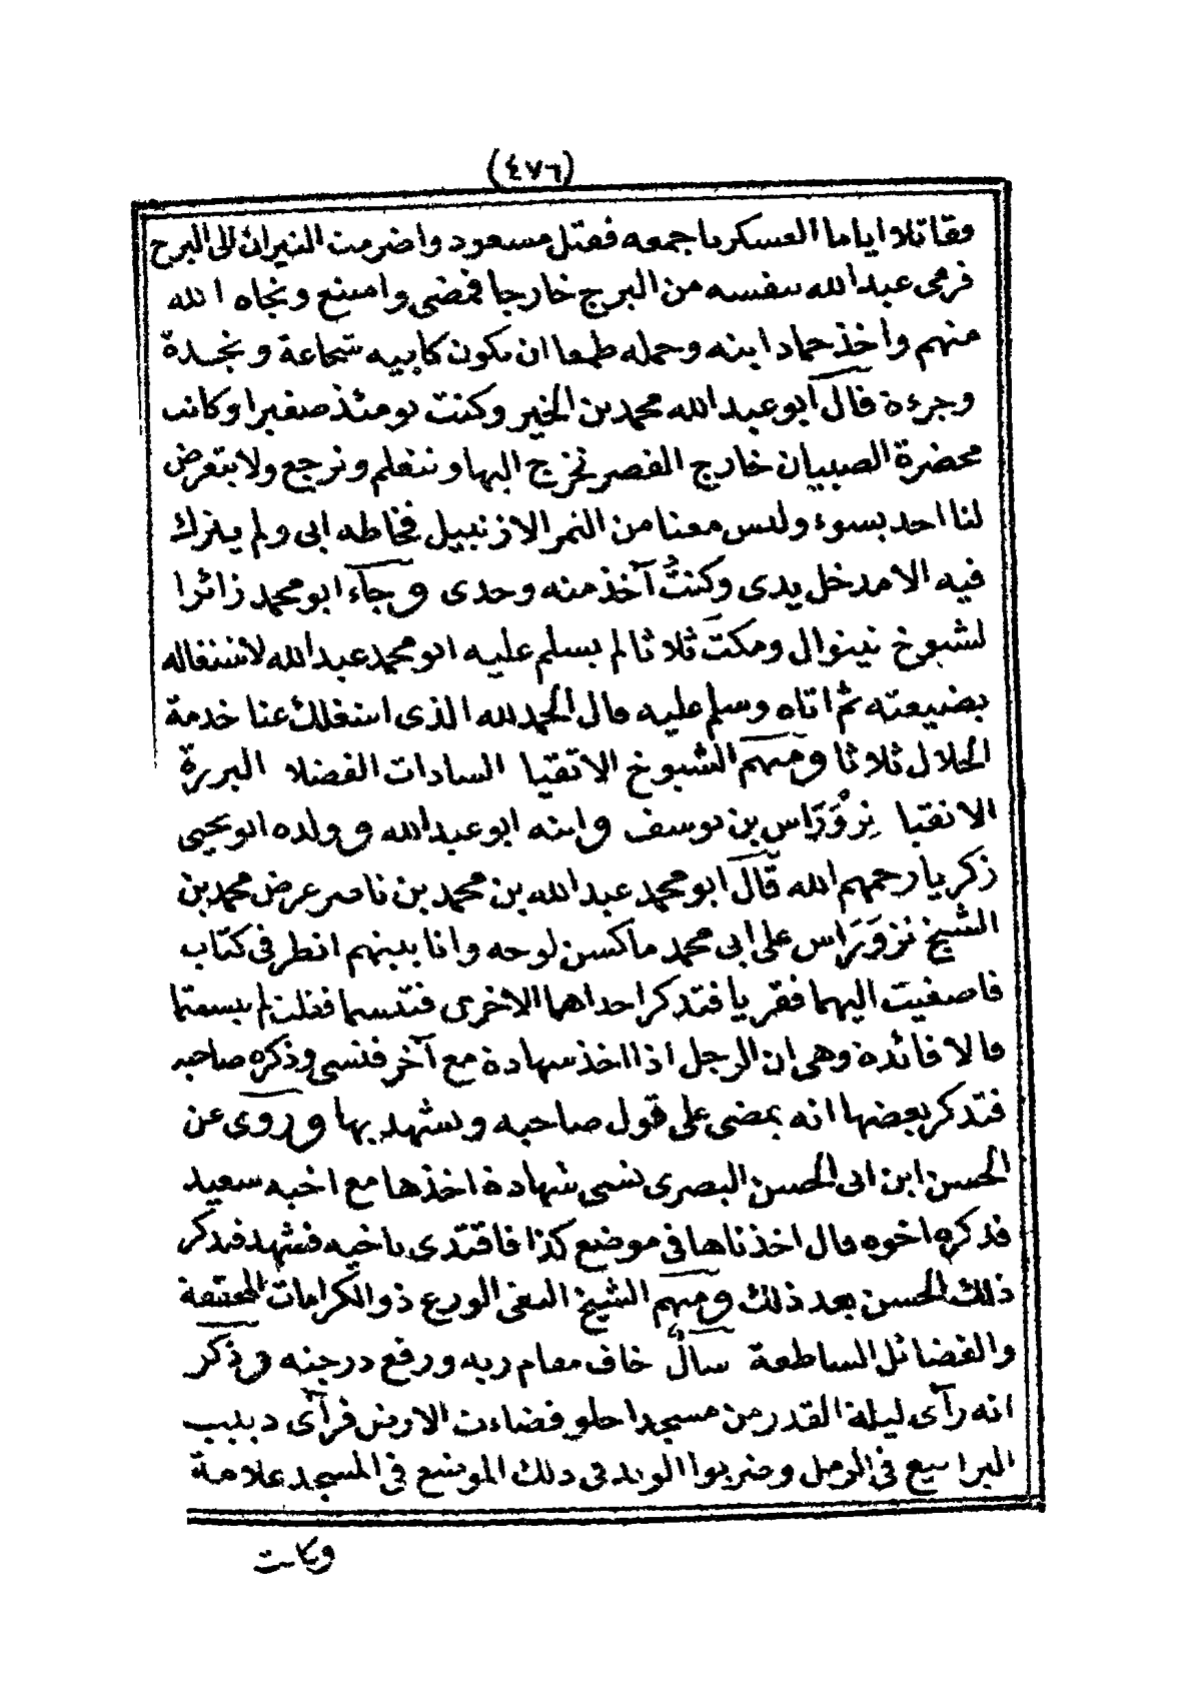 (٤٧٦)
وقاتلا اياما العسكر باجمعه فقتل مسعود واضرمت النيران الى البرج
فرمى عبد الله بنفسه من البرج خارجا فمضى وامتنع ونجاه الله
منهم واخذ حماد ابنه وحمله طمعا ان يكون كابيه شجاعة ونجدة
وجرءة قال ابو عبد الله محمد بن الخير وكنت يومئذ صغيرا وكانت
محضرة الصبيان خارج القصر نخرج اليها ونتعلم ونرجع ولا يتعرض
لنا احد بسوء وليس معنا من التمر الا زنبيل فخاطه ابى ولم يترك
فيه الا مدخل يدى وكنتُ آخذ منه وحدى وجاء ابو محمد زائرا
لشيوخ تينوال ومكث ثلاثا لم يسلم عليه ابو محمد عبد الله لاشتغاله
بضيعته ثم اتاه وسلم عليه قال الحمد لله الذى اشغلك عنا خدمة
الحلال ثلاثا ومنهم الشيوخ الاتقيا السادات الفضلا البررة
الانقيا نِزْوَرَاس بن يوسف وابنه ابو عبد الله وولده ابو يحيى
زكريا رحمهم الله قال ابو محمد عبد الله بن محمد بن ناصر عرض محمد بن
الشيخ نزوَرَاس على ابى محمد ماكسن لوحه وانا بينهم انظر فى كتاب
فاصغيت اليهما فقريا فتذكر احداهما الاخرى فتبسما فقلت لم تبسمتما
قالا فائدة وهى ان الرجل اذا اخذ شهادة مع آخر فنسى وذكره صاحبه
فتذكر بعضها انه يمضى على قول صاحبه ويشهد بها وروى عن
الحسن ابن ابى الحسن البصرى نسى شهادة اخذها مع اخيه سعيد
فذكره اخوه قال اخذناها فى موضع كذا فاقتدى باخيه فشهد فتذكر
ذلك الحسن بعد ذلك ومنهم الشيخ التقى الورع ذو الكرامات
والفضائل الساطعة سال خاف مقام ربه ورفع درجته وذكر
انه رآى ليلة القدر من مسجد احلو فضاءت الارض فرآى دبيب
البراسيع فى الرمل وضربوا الوتد فى ذلك الموضع فى المسجد علامة
وكانت